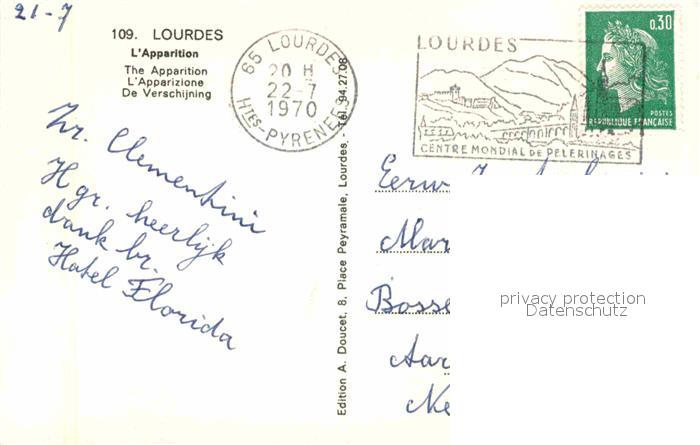 21-7
109. LOURDES
L'Apparition
The Apparition
L'Apparizione
De Verschijning
65 LOURDES
20 H
22-7
1970
HTES-PYRENEES
LOURDES
CENTRE MONDIAL DE PELERINAGES
0,30
POSTES
REPUBLIQUE FRANÇAISE
Zr. Clementini
H gr. heerlijk
dank br.
Hotel Florida
Edition A. Doucet, 8, Place Peyramale, Lourdes, Tél. 94.27.08
Eerw
Mar
Bosse
Aar
Ne
privacy protection
Datenschutz